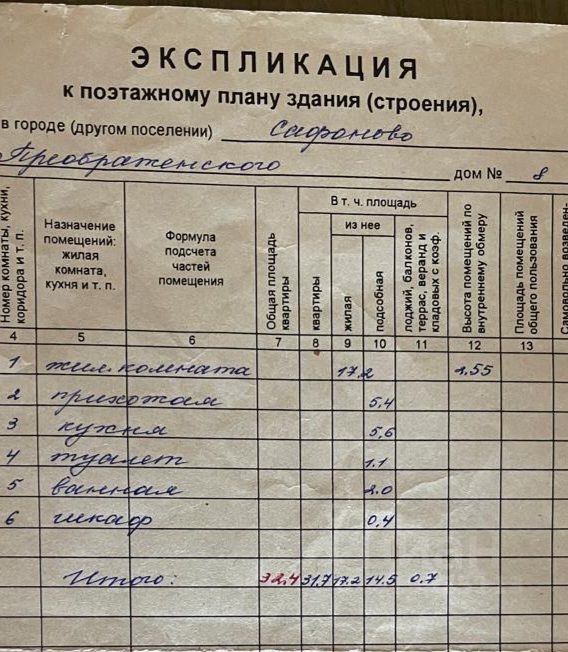 ЭКСПЛИКАЦИЯ
к поэтажному плану здания (строения),
в городе (другом поселении) Сафоново
Преображенского дом № 8
Номер комнаты, кухни, коридора и т. п.
Назначение помещений: жилая комната, кухня и т. п.
Формула подсчета частей помещения
Общая площадь квартиры
В т. ч. площадь
квартиры
из нее
жилая
подсобная
лоджий, балконов, террас, веранд и кладовых с коэф.
Высота помещений по внутреннему обмеру
Площадь помещений общего пользования
Самовольно возведен-
4 5 6 7 8 9 10 11 12 13
1 жил. комната 17,2 2,55
2 прихожая 5,4
3 кухня 5,6
4 туалет 1.1
5 ванная 2.0
6 шкаф 0,4
Итого: 32,4 31,7 17.2 14.5 0.7